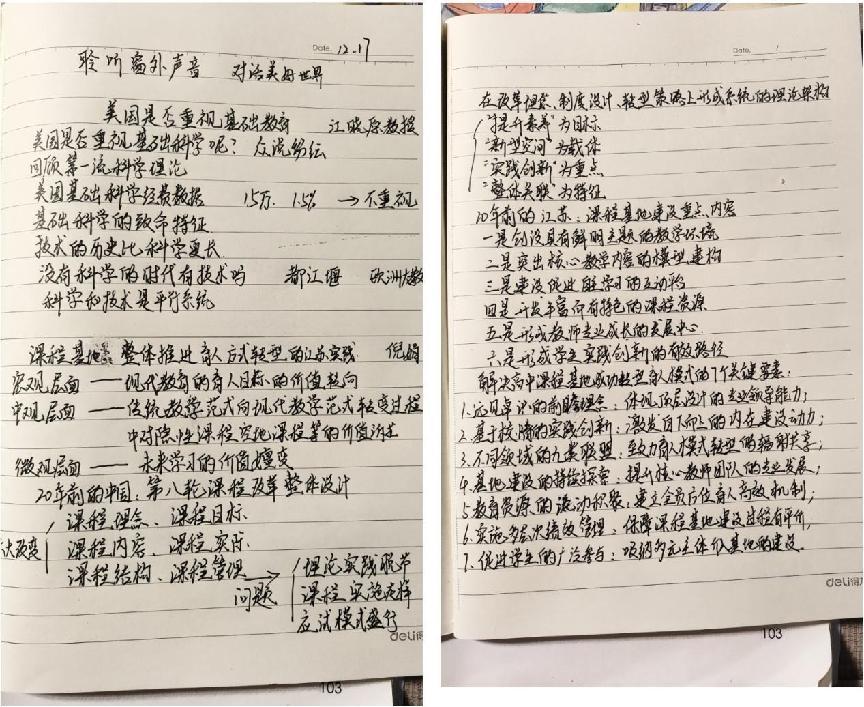 Date. 12.17
聆听窗外声音 对话美好世界
美国是否重视基础教育 江晓原教授
美国是否重视基础科学呢？众说纷纭
回顾第一流科学理论
美国基础科学经费数据 15万. 1.5% → 不重视
基础科学的致命特征
技术的历史比科学更长
没有科学的时代有技术吗 都江堰 欧洲大教
科学和技术是平行系统
课程基地 整体推进育人方式转型的江苏实践 倪娟
宏观层面 —— 现代教育的育人目标的价值转向
中观层面 —— 传统教学范式向现代教学范式转变过程
中对隐性课程空地课程等的价值
微观层面 —— 未来学习的价值嬗变
20年前的中国：第八轮课程改革整体设计
六大改变
课程理念、课程目标
课程内容、课程实际
课程结构、课程管理 →
问题
理论实践脱节
课程实施走样
应试模式盛行
deli
103
Date.
在改革理念、制度设计、转型策略上形成系统的理论架构
"提升素养"为目标
"新型空间"为载体
"实践创新"为重点
"整体关联"为特征
10年前的江苏：课程基地建设重点内容
一是创设具有鲜明主题的教学环境
二是突出核心教学内容的模型建构
三是建设促进自主学习的互动平台
四是开发丰富而有特色的课程资源
五是形成教师专业成长的发展中心
六是形成学生实践创新的有效路径
解决高中课程基地成功转型育人模式的7个关键要素：
1.远见卓识的前瞻理念：体现顶层设计的专业领导能力；
2.基于校情的实践创新：激发自下而上的内在建设动力；
3.不同领域的九类联盟：致力育人模式转型的辐射共享；
4.基地建设的持续探索：提升核心教师团队的专业发展；
5.教育资源的流动积聚：建立全员全位育人高效机制；
6.实施多层次绩效管理：保障课程基地建设过程有评价，
7.促进学生的广泛参与：吸纳多元主体介入基地的建设.
deli得力
103